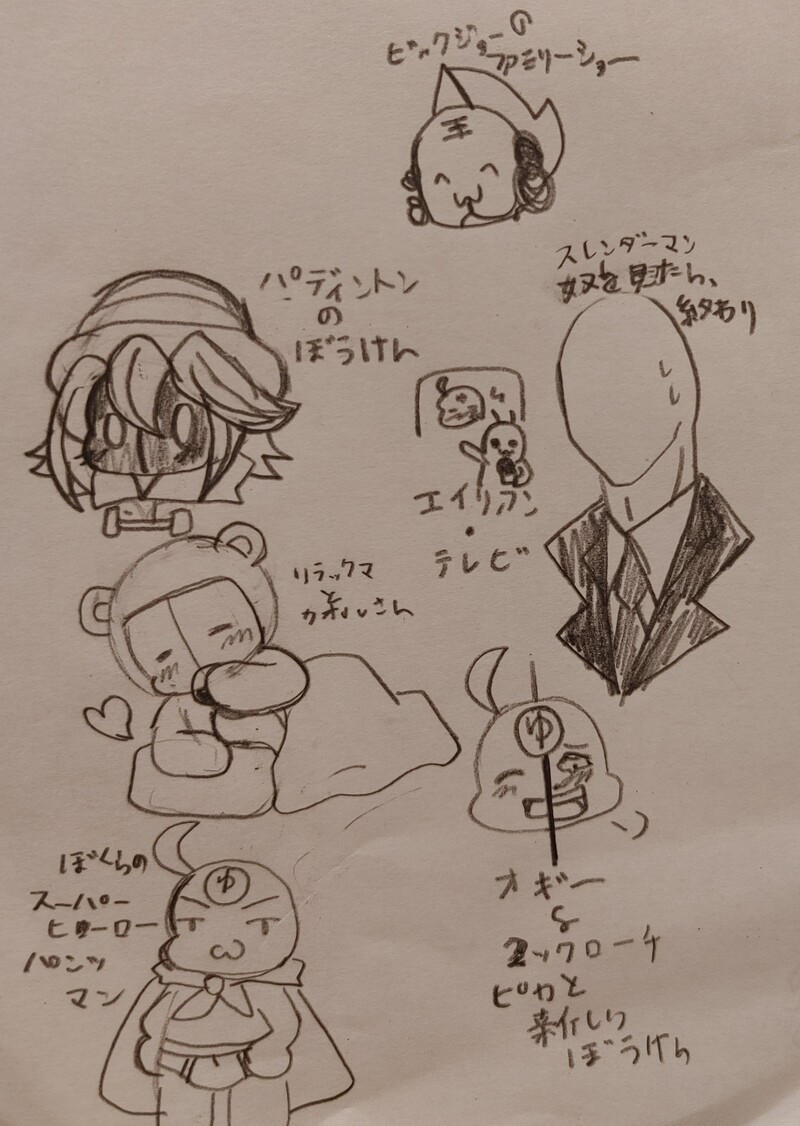 ビックジョーの
ファミリーショー
王
スレンダーマン
奴を見たら、
終わり
パディントン
の
ぼうけん
エイリアン
・
テレビ
リラックマ
と
カオルさん
ゆ
オギー
&
コックローチ
ピカと
新しい
ぼうけん
ぼくらの
スーパー
ヒーロー
パンツ
マン
ゆ